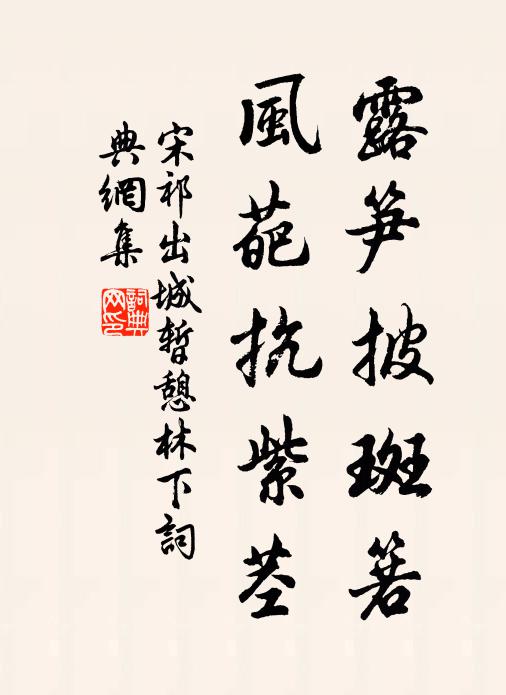 露笋披斑箬
風葩抗紫莖
宋祁出城暫憩林下詞
典網集
詞典網印